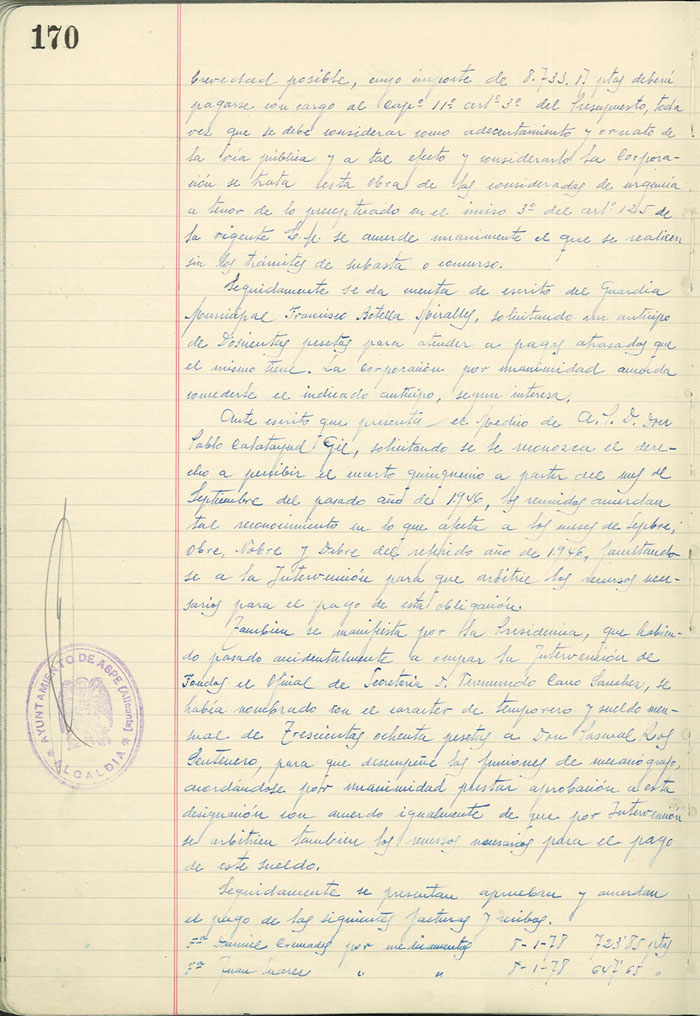 170
brevedad posible, cuyo importe de 8.733,17 ptas deberá
pagarse con cargo al Capº 11º artº 3º del Presupuesto, toda
vez que se debe considerar como adecentamiento y ornato de
la vía pública y a tal efecto y considerarlo la Corpora-
ción se trata esta obra de las consideradas de urgencia
a tenor de lo preceptuado en el inciso 3º del artº 125 de
la vigente L.M. se acuerde unanimente el que se realicen
sin los trámites de subasta o concurso.
Seguidamente se da cuenta de escrito del Guardia
Municipal Francisco Botella Miralles, solicitando un anticipo
de Doscientas pesetas para atender a pagos atrasados que
el mismo tiene. La Corporación por unanimidad acuerda
concederle el indicado anticipo, segun interesa.
Ante escrito que presenta el Medico de A.P.D. Don
Pablo Calatayud Gil, solicitando se le reconozca el dere-
cho a percibir el cuarto quinquenio a partir del mes de
Septiembre del pasado año de 1946, los reunidos acuerdan
tal reconocimiento en lo que afecta a los meses de Sepbre,
Obre, Nobre y Dobre del referido año de 1946, facultando-
se a la Intervención para que arbitrie los recursos nece-
sarios para el pago de esta obligación.
Tambien se manifiesta por la Presidencia, que habien-
do pasado accidentalmente a ocupar la Intervención de
Fondos el Oficial de Secretaria D. Veremundo Cano Sanchez, se
había nombrado con el caracter de temporero y sueldo men-
sual de Trescientas ochenta pesetas a Don Pascual Ros
Sentenero, para que desempeñe las funciones de mecanógrafo,
acordándose por unanimidad prestar aprobación a esta
designación con acuerdo igualmente de que por Intervención
se arbitrien tambien los recursos necesarios para el pago
de este sueldo.
Seguidamente se presentan aprueban y acuerdan
el pago de las siguientes facturas y recibos.
Fra Daniel Cremades por medicamentos 8-1-78 723'85 ptas
Fra Juan Suarez " " 8-1-78 647'65 "
AYUNTAMIENTO DE ASPE (Alicante)
* ALCALDIA *